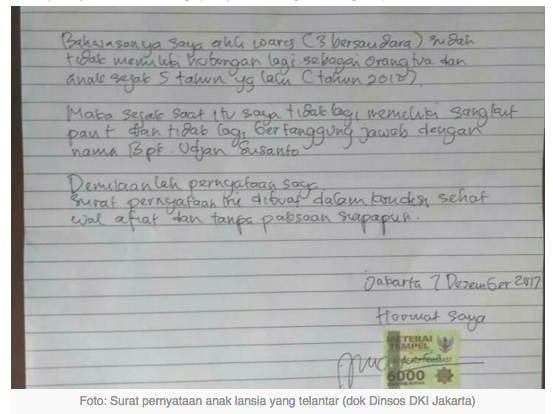 Bahwasanya saya ahli waris (3 bersaudara) sudah
tidak memiliki hubungan lagi sebagai orangtua dan
anak sejak 5 tahun yg lalu (tahun 2012).
Maka sejak saat itu saya tidak lagi memiliki sangkut
paut dan tidak lagi bertanggung jawab dengan
nama Bpk. Udjan Susanto
Demikianlah pernyataan saya
surat pernyataan ini dibuat dalam kondisi sehat
wal afiat dan tanpa paksaan siapapun.
Jakarta 7 Desember 2017
Hormat saya
METERAI
TEMPEL
6000
Foto: Surat pernyataan anak lansia yang telantar (dok Dinsos DKI Jakarta)